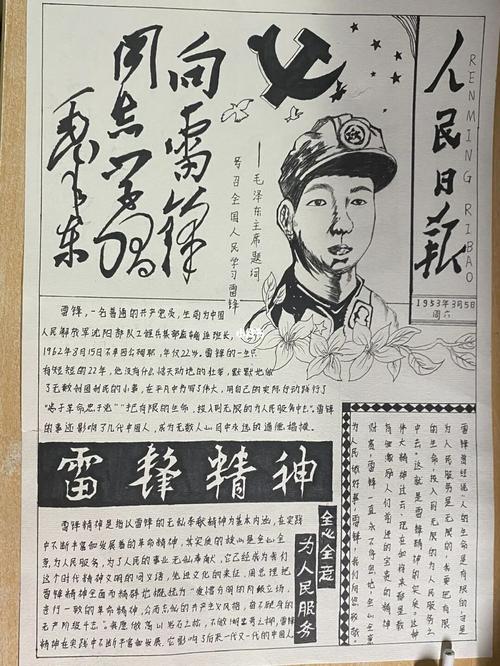 人民日报
RENMING RIBAO
1953年3月5日
周六
向雷锋
同志学习
毛泽东
——毛泽东主席题词
号召全国人民学习雷锋
雷锋，一名普通的共产党员，生前为中国
人民解放军沈阳部队工程兵某部运输连班长，
1962年8月15日不幸因公殉职，年仅22岁。雷锋的一生只
有短短的22年，他没有什么惊天动地的壮举，默默地做
了无数利国利民的小事，在平凡中书写了伟大，用自己的实际行动践行了
把有限的生命，投入到无限的为人民服务中去。雷锋
的事迹影响了几代中国人，成为无数人心目中永远的道德楷模。
雷锋精神
雷锋精神是指以雷锋的无私奉献精神为基本内涵，在实践
中不断丰富和发展着的革命精神，其实质和核心是全心全
意为人民服务，为了人民的事业无私奉献，它已经成为我们
这个时代精神文明的同义语，先进文化的表征。周总理把
雷锋精神全面而精辟地概括为"憎爱分明的阶级立场，
言行一致的革命精神，公而忘私的共产主义风格，奋不顾身的
无产阶级斗志。"
精神在实践中不断丰富和发展，它影响了后来一代又一代的中国人
全心全意
为人民服务
雷锋曾经说"人的生命是有限的可是
为人民服务是无限的，我要把有限
的生命，投入到无限的为人民服务之
中去。"这就是雷锋精神的实质。这种
伟大精神过去、现在和将来都是我